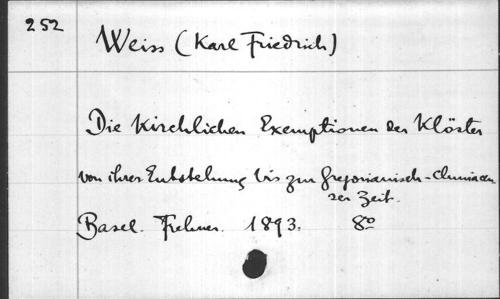 252
Weiss (Karl Friedrich)
Die kirchlichen Exemptionen der Klöster
von ihrer Entstehung bis zur gregorianisch-cluniacen
ser Zeit.
Basel. Frehner. 1893. 8º